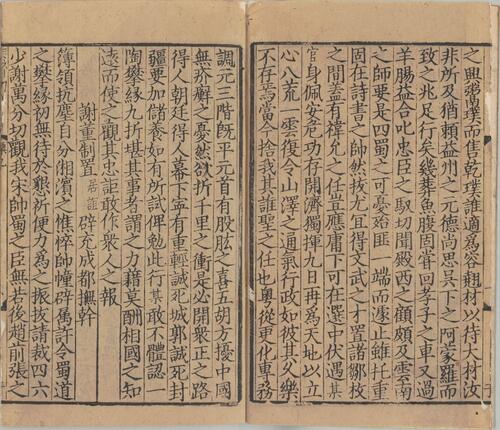 之興鬻璞而售乾璞誰適爲容翻材以待大材汝
非所及猶頼益州之元德尚思吳下之阿蒙羅而
致之兆足行矣幾葬魚腹固甞回孝子之車又過
羊腸益合叱忠臣之馭切聞殿西之顧頗及雲南
之師要是四蜀之可憂殆匪一端而遽止雖托重
固在詩書之帥然拔尤宜得文武之才置諸鄒枚
之間蓋有禆允之任並應庸下可在選中伏遇某
官身佩安危功存開濟獨揮九日再爲天地以立
心八荒一雲復令山澤之通氣行政如彼其乆樂
不存焉當今捨我其誰聖之任也輿從更化車務
調元三階旣平元首有股肱之喜五胡方擾中國
無疥癬之憂然欲折千里之衝是必開衆正之路
得人朝廷得人幕下寧有重輕誠死城郭誠死封
疆要加儲養如有所試俾勉此行某敢不體認
陶攀縁九折堪其事者謂之力藉莫酬相國之知
逺而使之觀其忠詎敢作衆人之報
謝董制置 若誼 辟充成都撫幹
簿領抗塵自分湘濆之憔悴帥幢辟屬許令蜀道
之攀縁初無待於懇祈便力爲之振拔請裁四六
少謝萬分切觀我宋帥蜀之臣無若後趙前張之